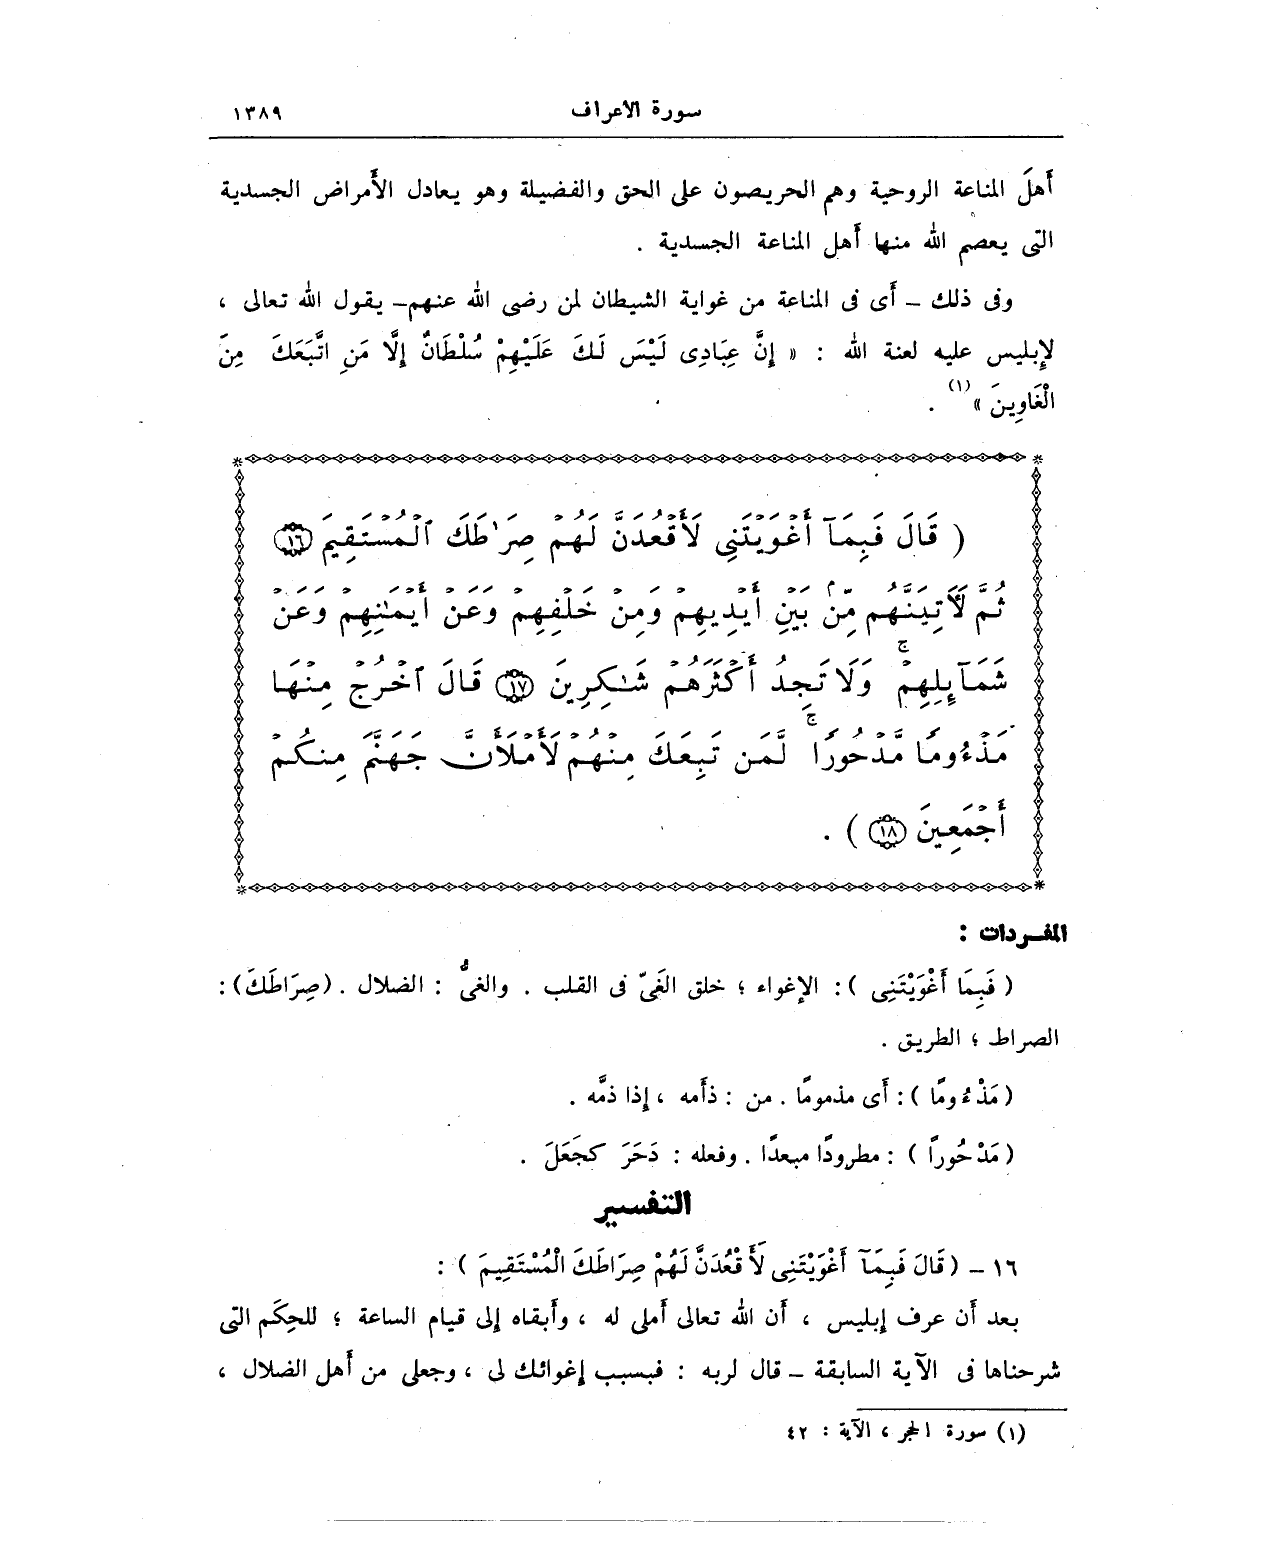 سورة الأعراف ١٣٨٩
أَهلَ المناعة الروحية وهم الحريصون على الحق والفضيلة وهو يعادل الأَمراض الجسدية
التى يعصم الله منها أَهل المناعة الجسدية .
وفى ذلك – أَى فى المناعة من غواية الشيطان لمن رضى الله عنهم – يقول الله تعالى ،
لإبليس عليه لعنة الله : « إِنَّ عِبَادِى لَيْسَ لَكَ عَلَيْهِمْ سُلْطَانٌ إِلَّا مَنِ اتَّبَعَكَ مِنَ
الْغَاوِينَ » (١) .
( قَالَ فَبِمَآ أَغْوَيْتَنِى لَأَقْعُدَنَّ لَهُمْ صِرَٰطَكَ ٱلْمُسْتَقِيمَ ١٦
ثُمَّ لَأَتِيَنَّهُم مِّنۢ بَيْنِ أَيْدِيهِمْ وَمِنْ خَلْفِهِمْ وَعَنْ أَيْمَـٰنِهِمْ وَعَن
شَمَآئِلِهِمْ ۖ وَلَا تَجِدُ أَكْثَرَهُمْ شَـٰكِرِينَ ١٧ قَالَ ٱخْرُجْ مِنْهَا
مَذْءُومًا مَّدْحُورًا ۖ لَّمَن تَبِعَكَ مِنْهُمْ لَأَمْلَأَنَّ جَهَنَّمَ مِنكُمْ
أَجْمَعِينَ ١٨ ) .
المفـردات :
( فَبِمَا أَغْوَيْتَنِى ) : الإغواء ؛ خلق الغَىّ فى القلب . والغىُّ : الضلال . (صِرَاطَكَ) :
الصراط ؛ الطريق .
( مَذْءُومًا ) : أَى مذمومًا . من : ذأَمه ، إذا ذمَّه .
( مَدْحُوراً ) : مطرودًا مبعدًا . وفعله : دَحَرَ كجَعَلَ .
التفسير
١٦ – ( قَالَ فَبِمَآ أَغْوَيْتَنِى لَأَقْعُدَنَّ لَهُمْ صِرَاطَكَ الْمُسْتَقِيمَ ) :
بعد أَن عرف إبليس ، أَن الله تعالى أَملى له ، وأَبقاه إلى قيام الساعة ؛ للحِكَم التى
شرحناها فى الآية السابقة – قال لربه : فبسبب إغوائك لى ، وجعلى من أَهل الضلال ،
(١) سورة الحجر ، الآية : ٤٢